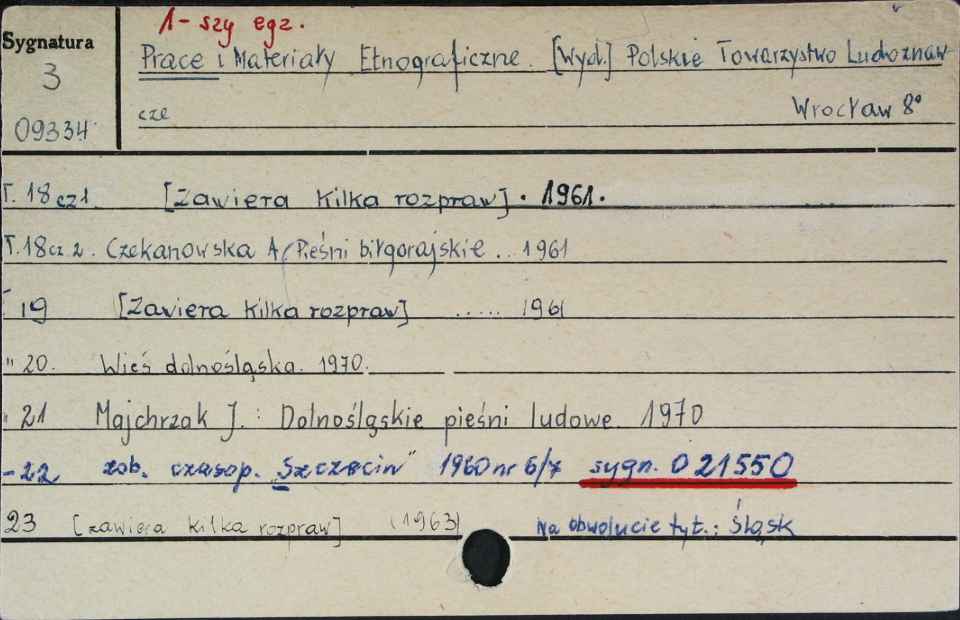 1-szy egz.
Sygnatura
3
09334
Prace i Materiały Etnograficzne. [Wyd.] Polskie Towarzystwo Ludoznaw-
cze Wrocław 8°
T. 18 cz 1. [Zawiera kilka rozpraw]. 1961.
T. 18 cz. 2. Czekanowska A. Pieśni biłgorajskie .. 1961
19 [Zawiera kilka rozpraw] ..... 1961
" 20. Wieś dolnośląska. 1970.
" 21 Majchrzak J.: Dolnośląskie pieśni ludowe. 1970
- 22 zob. czasop. „Szczecin" 1960 nr 6/7 sygn. 021550
23 [zawiera kilka rozpraw] (1963) Na obwolucie tyt.: Śląsk